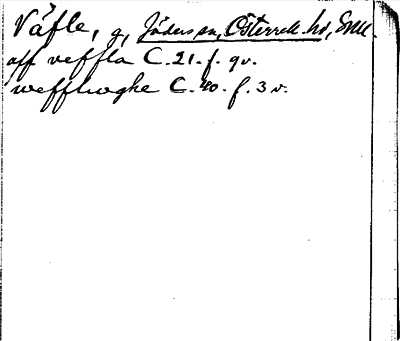 Väfle, g, Jäders sn, Österrek. hd, Sml.
aff veffla C. 21. f. 9v.
weffloghe C. 40. f. 3 v.